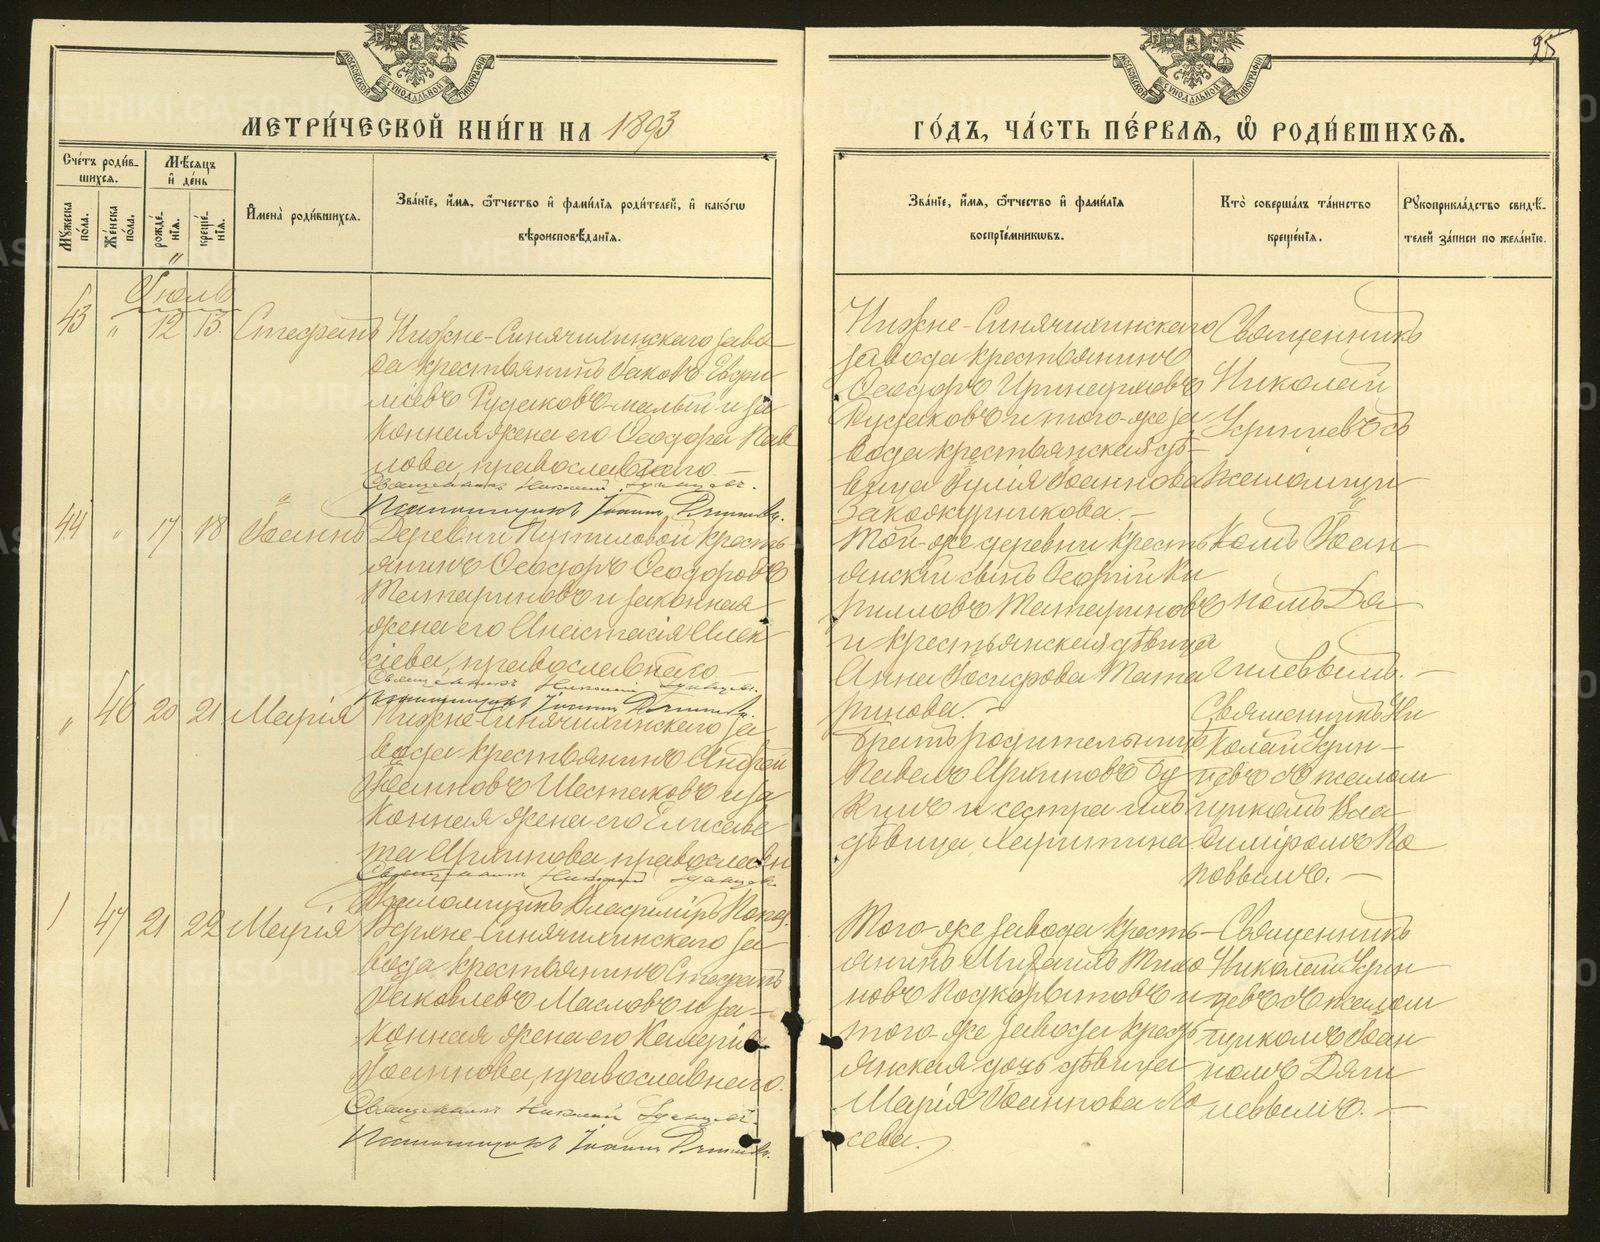 25
МОСКОВСКОЙ СѴНОДАЛЬНОЙ ТИПОГРАФІИ
МОСКОВСКОЙ СѴНОДАЛЬНОЙ ТИПОГРАФІИ
МЕТРИ́ЧЕСКОЙ КНИ́ГИ НА 1893
ГО́ДЪ, ЧА́СТЬ ПЕ́РВАѦ, Ѡ҆ РОДИ́ВШИХСѦ.
Сче́тъ роди́в-
шихсѧ.
Мꙋ́жеска по́ла.
Же́нска по́ла.
Мѣ́сѧцъ и҆ де́нь
рожде́-
нїѧ.
креще́-
нїѧ.
И҆мена̀ роди́вшихсѧ.
Зва́нїе, и҆́мѧ, ѻ҆́тчество и҆ фами́лїѧ роди́телей, и҆ како́гѡ
вѣроисповѣ́данїѧ.
Зва́нїе, и҆́мѧ, ѻ҆́тчество и҆ фами́лїѧ
воспрїе́мникѡвъ.
Кто̀ соверша́лъ та́инство
креще́нїѧ.
Рꙋкоприкла́дство свидѣ́-
телей за́писи по жела́нїю.
Іюль
43 " 12 13. Стефанъ
Нижне-Синячихинскаго заво
да крестьянинъ Іаковъ Евфи
міевъ Рудаковъ-малый и за
конная жена его Ѳеодора Пав
лова, православнаго —
Священникъ Николай Удинцевъ.
Псаломщикъ Іоаннъ
Нижне-Синячихинскаго
завода крестьянинъ
Ѳеодоръ
Рудаковъ и того-же за
вода крестьянская дѣ-
вица Іулія Іоаннова
Закожурникова. —
Священникъ
Николай
Удинцевъ съ
псаломщи
44 " 17 18 Іоаннъ
Деревни Путиловой кресть
янинъ Ѳеодоръ Ѳеодоровъ
Татариновъ и законная
жена его Анастасія Алек
сіева, православнаго —
Священникъ Николай Удинцевъ.
Псаломщикъ Іоаннъ
Той-же деревни кресть
янскій сынъ Георгій Ки
рилловъ Татариновъ
и крестьянская дѣвица
Анна Іосифова Тата
ринова. —
комъ Іоан
номъ Дя
гилевымъ. —
" 46 20 21 Марія
Нижне-Синячихинскаго за
вода крестьянинъ Андрей
Іоанновъ Шестаковъ и за
конная жена его Елисаве
та Архипова, православн
Священникъ Николай Удинцевъ.
Псаломщикъ Владиміръ Попов
Братъ родительницы
Павелъ Архиповъ Бу
кинъ и сестра ихъ
дѣвица Харитина
Священникъ Ни
колай Удин-
цевъ съ псалом
щикомъ Вла
диміромъ По
повымъ. —
47 21 22 Марія
Верхне-Синячихинскаго за
вода крестьянинъ Стефанъ
Іаковлевъ Масловъ и за-
конная жена его Валерія
Іоаннова, православнаго.
Священникъ Николай Удинцевъ.
Псаломщикъ Іоаннъ
Того-же завода кресть-
янинъ Михаилъ Тихо
новъ Подкорытовъ и
того-же завода крест
янская дочь дѣвица
Марія Іоаннова Ло
сева.
Священникъ
Николай Удин
цевъ съ псалом
щикомъ Іоан
номъ Дяги
левымъ. —
METRIKI.GASO-URAL.RU